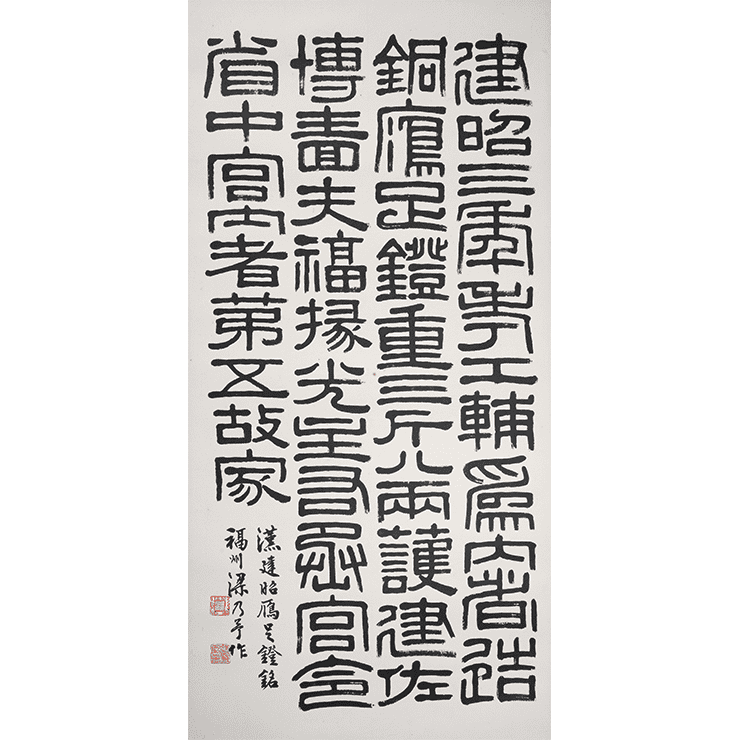 建昭三年考工輔爲內者造
銅鴈足鐙重三斤八兩護建佐
博嗇夫福掾光主右丞宮令
省中宮內者第五故家
漢建昭鴈足鐙銘
福州梁乃予作